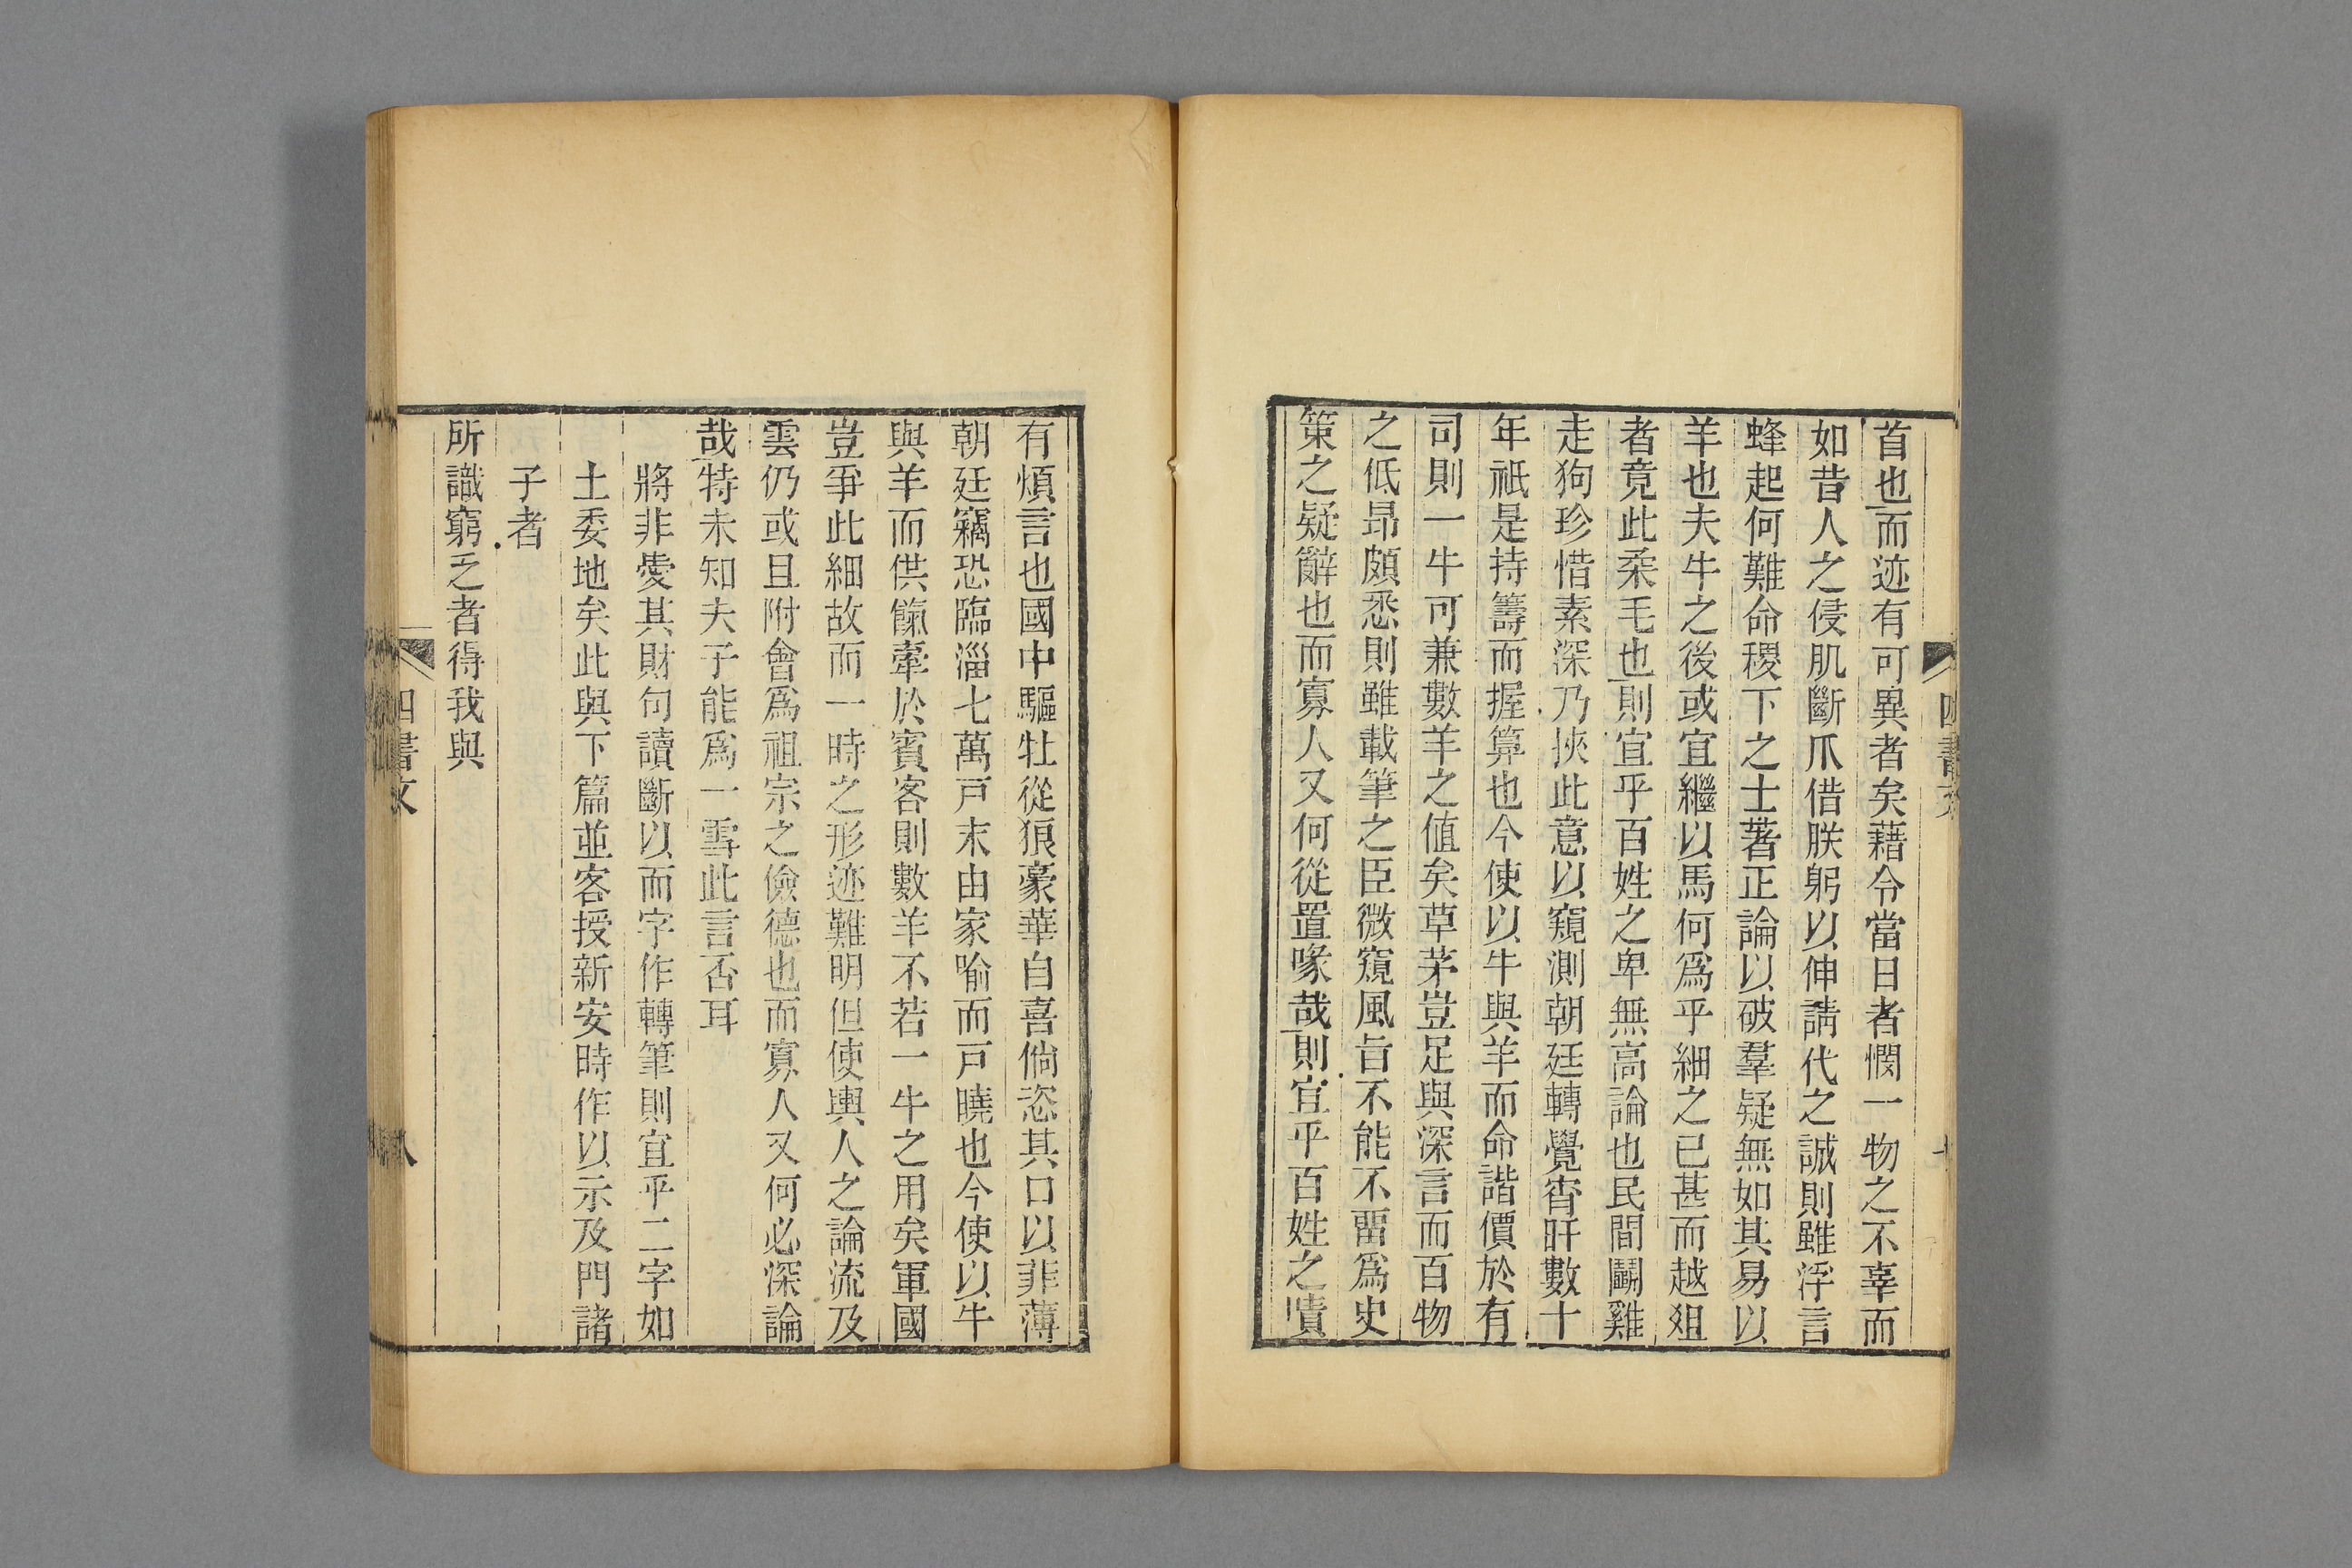 首也而迹有可異者矣藉令當日者憫一物之不辜而
如昔人之侵肌斷爪借朕躬以伸請代之誠則雖浮言
蜂起何難命稷下之士著正論以破羣疑無如其易以
羊也夫牛之後或宜繼以馬何爲乎細之已甚而越俎
者竟此柔毛也則宜乎百姓之卑無高論也民間鬭雞
走狗珍惜素深乃挾此意以窺測朝廷轉覺宵旰數十
年祇是持籌而握算也今使以牛與羊而命諧價於有
司則一牛可兼數羊之值矣草茅豈足與深言而百物
之低昂頗悉則雖載筆之臣微窺風旨不能不畱爲史
策之疑辭也而寡人又何從置喙哉則宜乎百姓之嘖
四書文
七
有煩言也國中驅牡從狼豪華自喜倘恣其口以菲薄
朝廷竊恐臨淄七萬戸末由家喻而戸曉也今使以牛
與羊而供餼牽於賓客則數羊不若一牛之用矣軍國
豈爭此細故而一時之形迹難明但使輿人之論流及
雲仍或且附會爲祖宗之儉德也而寡人又何必深論
哉特未知夫子能爲一雪此言否耳
將非愛其財句讀斷以而字作轉筆則宜乎二字如
土委地矣此與下篇並客授新安時作以示及門諸
子者
所識窮乏者得我與
四書文
八